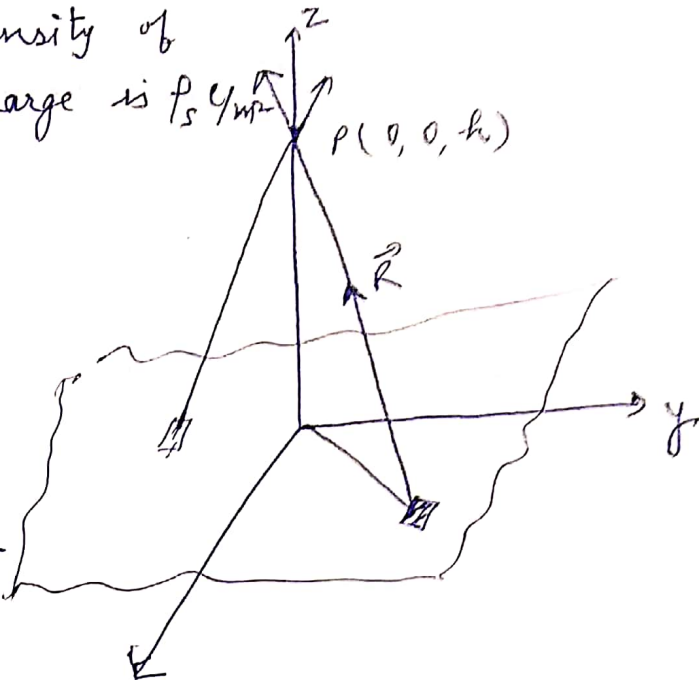 nsity of
arge is ρs C/m²
z
P(0, 0, h)
R⃗
y